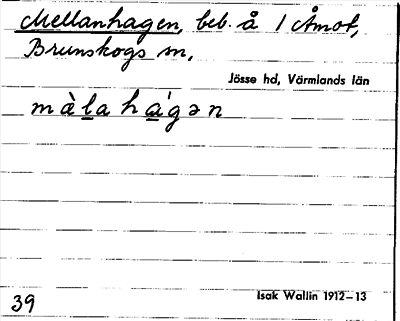 Mellanhagen, beb. å 1 Åmot,
Brunskogs sn,
Jösse hd, Värmlands län
màla hágən
Isak Wallin 1912–13
39